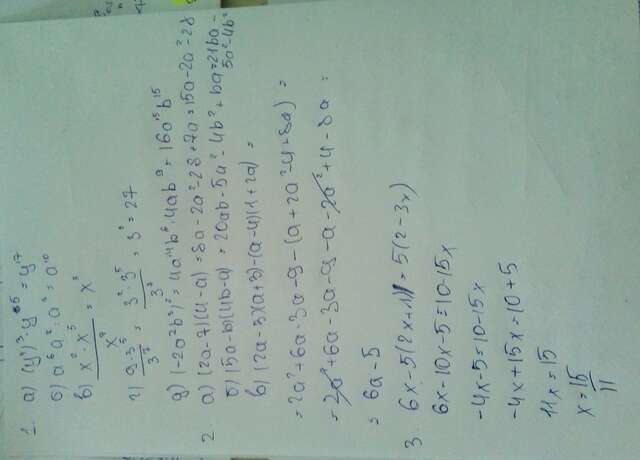 1. а) (y⁴)³·y⁵=y¹⁷
б) a⁶a²:a³=a¹⁰
в) x⁹·x⁵/x⁹=x⁵
г) 9·3⁵/3⁷=3²·3⁵/3⁷=3⁰=27
д) (-2a⁷b³)²=4a¹⁴b⁶·4ab⁹=16a¹⁵b¹⁵
2. а) (2a-7)(4-a)=8a-2a²-28+7a=15a-2a²-28
б) (5a-b)(4b-a)=20ab-5a²-4b²+ba=21ba-
5a²-4b²
в) (2a-3)(a+3)-(a-4)(1+2a)=
=2a²+6a-3a-9-(a+2a²-4-8a)=
=2a²+6a-3a-9-a-2a²+4-8a=
=6a-5
3. 6x-5(2x+1)=5(2-3x)
6x-10x-5=10-15x
-4x-5=10-15x
-4x+15x=10+5
11x=15
x=15/11